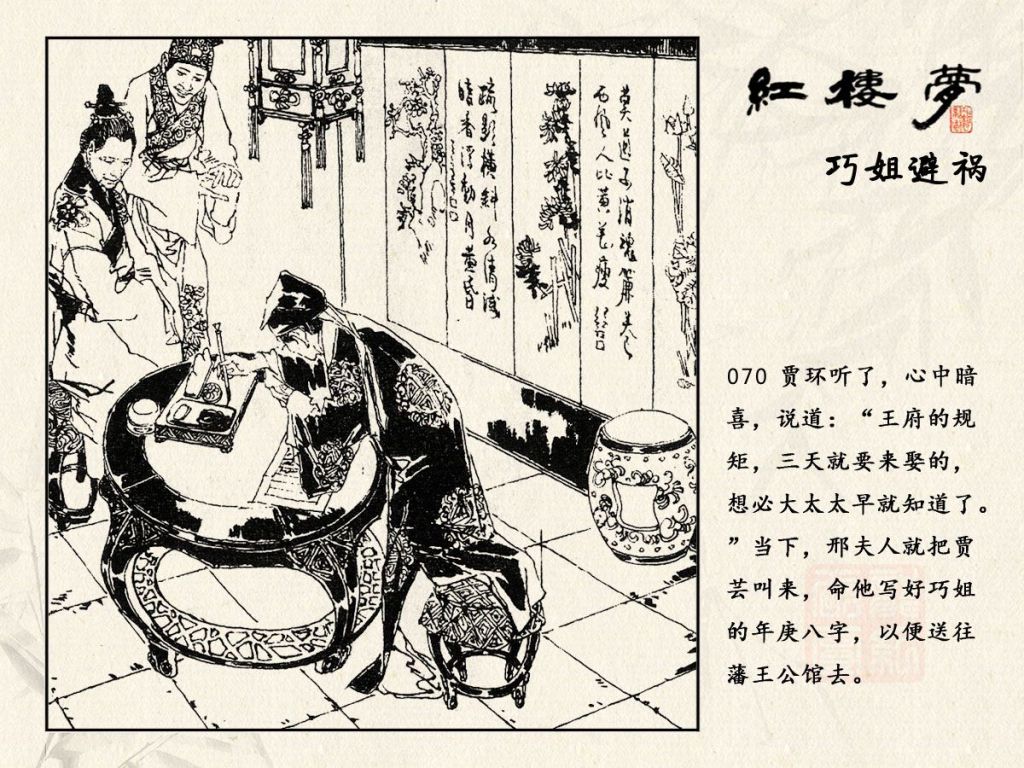 紅樓夢
巧姐避祸
疏影横斜水清浅
暗香浮動月黄昏
莫道不消魂簾卷
西風人比黄花瘦
070 贾环听了，心中暗
喜，说道：“王府的规
矩，三天就要来娶的，
想必大太太早就知道了。
”当下，邢夫人就把贾
芸叫来，命他写好巧姐
的年庚八字，以便送往
藩王公馆去。